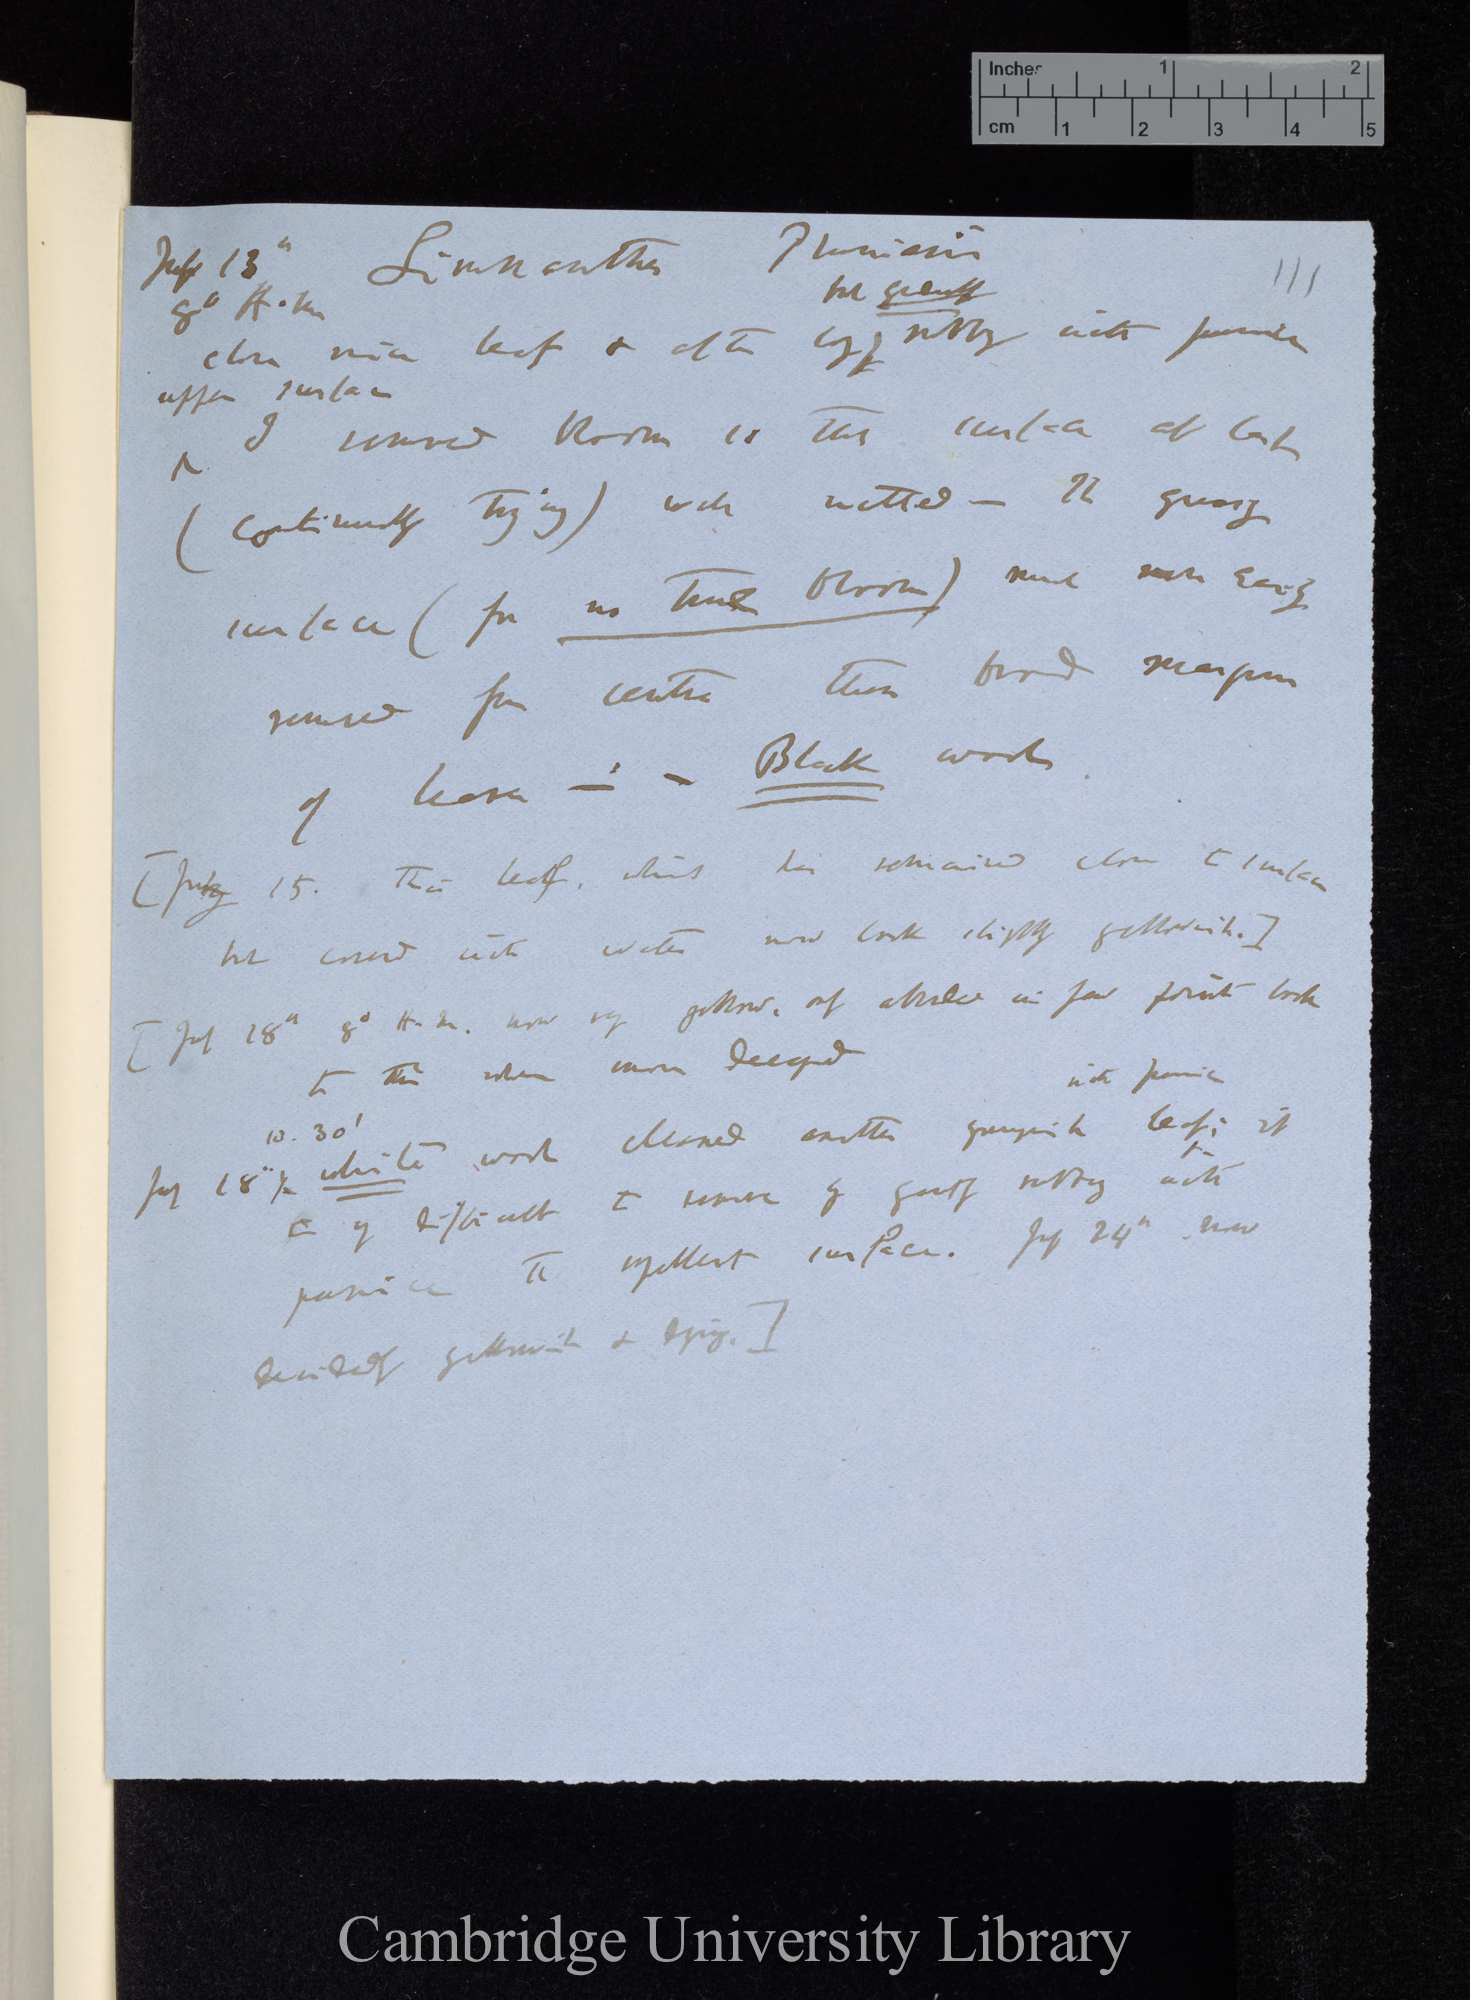 Inches 1 2
cm 1 2 3 4 5
July 13th Limnanthes Plumieri
111
8° A.m but gently
chose nice leaf & after long rubbing with
upper surface
I removed bloom so that surface at last
(continually trying) was wetted — The greasy
surface (for no true bloom) much more easily
removed from centre than broad margin
of leaves — Black wool.
[July 15. This leaf, which has remained close to surface
but covered with water now look slightly yellowish.]
[July 18th 8° A.m. now very yellow, and in few points look
to this when more decayed
with
10. 30'
July 18th white wool cleaned another greenish leaf; it
is very difficult to remove by gently rubbing with
the repellent surface. July 24th now
decidedly yellowish & dying.]
Cambridge University Library